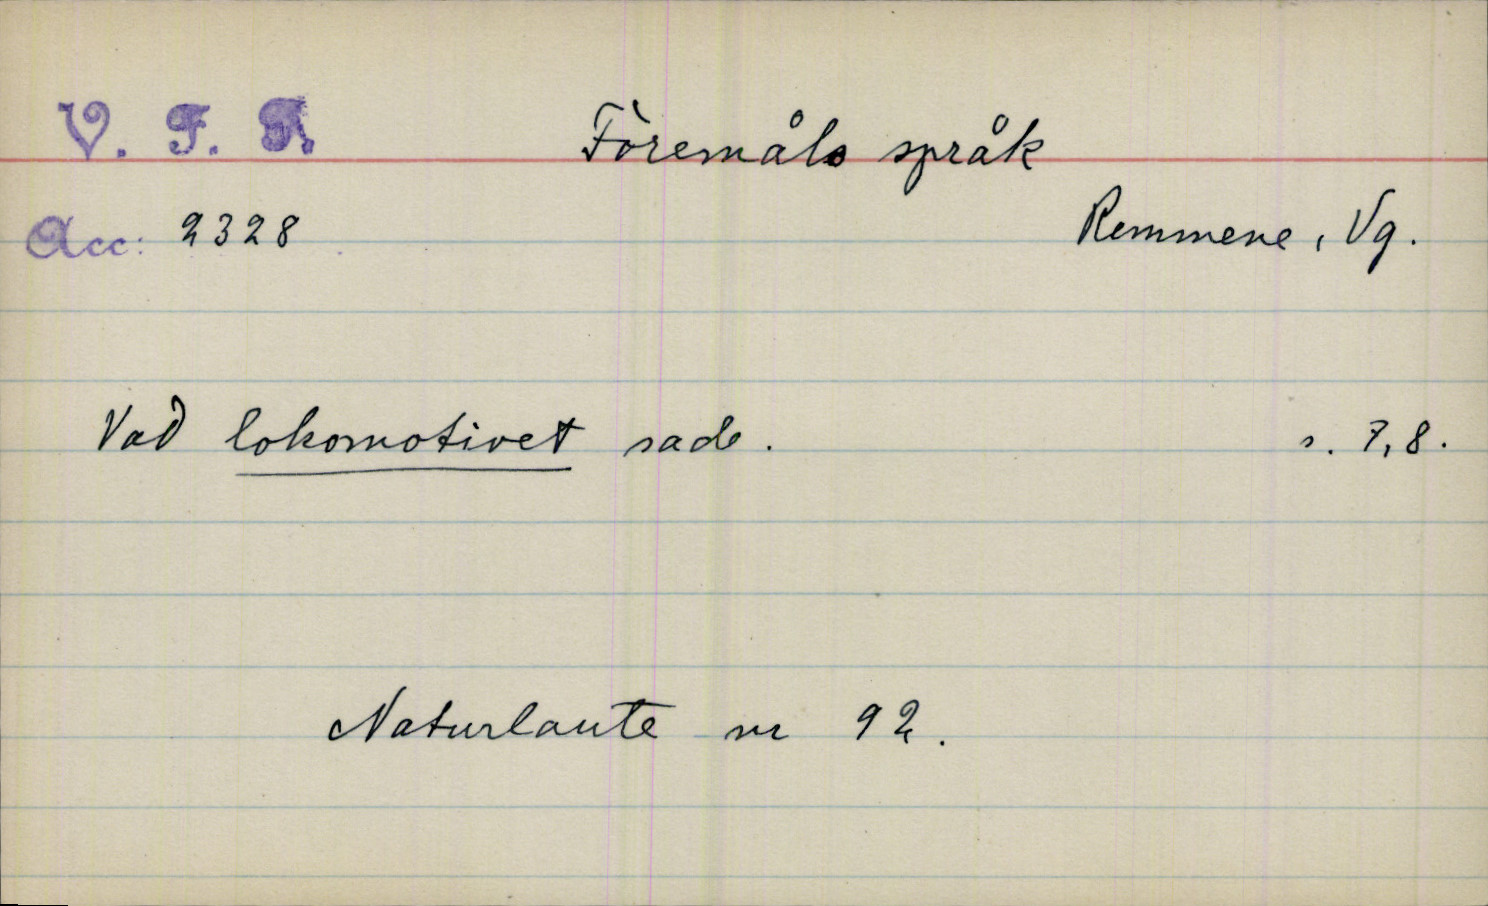 V. F. R. Föremåls språk
Acc: 2328 Remmene, Vg.
Vad lokomotivet sade. s. 7,8.
Naturlaute nr 92.